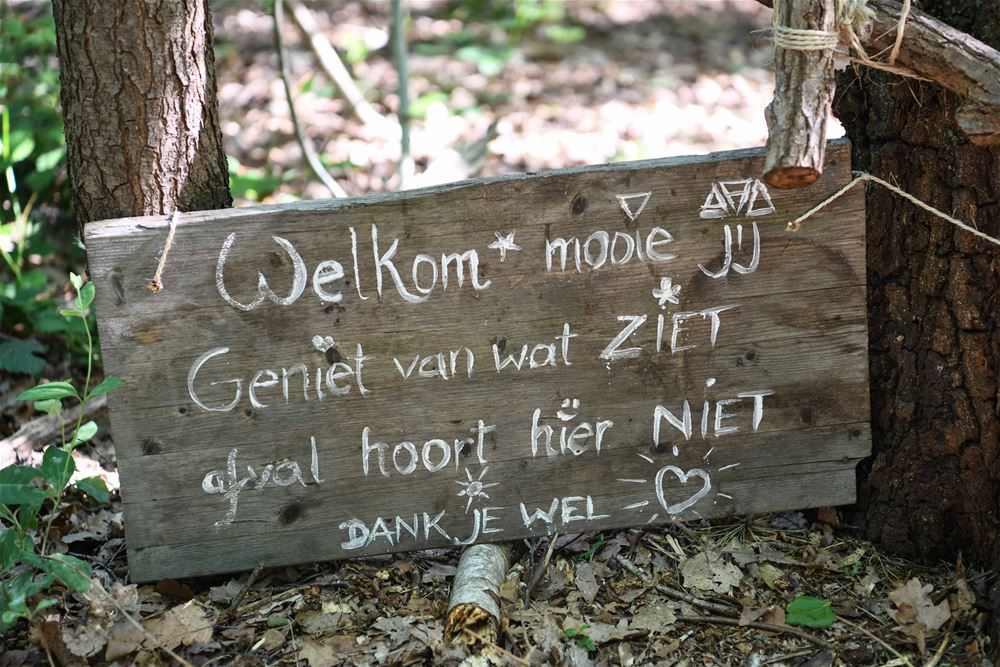 Welkom* mooie jij
Geniet van wat ZIET
afval hoort hier NIET
DANK JE WEL